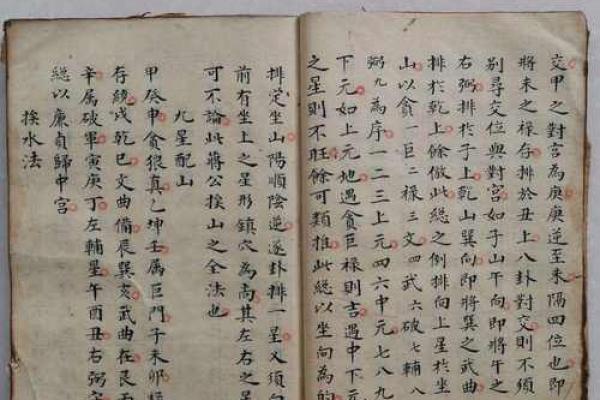 交甲之對宮為庚庚逆至未隔四位也即
將未之祿存排於丑上八卦對交則不須
別尋交位與對宮如子山午向即將午之
右弼排於子上乾山巽向即將巽之武曲
排於乾上餘倣此總之倒排向上星於坐
山以貪一巨二祿三文四武六破七輔八
弼九為序一二三上元四六中元七八九
下元如上元地遇貪巨祿則吉遇中下元
之星則不旺餘可類推此總以坐向為的
排定坐山陽順陰逆逐卦排一星又須向
前有坐上之星形鎮穴為尚其左右之星
可不論此蔣公挨山之全法也
九星配山
甲癸申貪狼真乙坤壬属巨門子未卯
存続戌乾巳文曲備辰巽亥武曲在艮丙
辛属破軍寅庚丁左輔星午酉丑右弼
總以廉貞歸中宮
挨水法